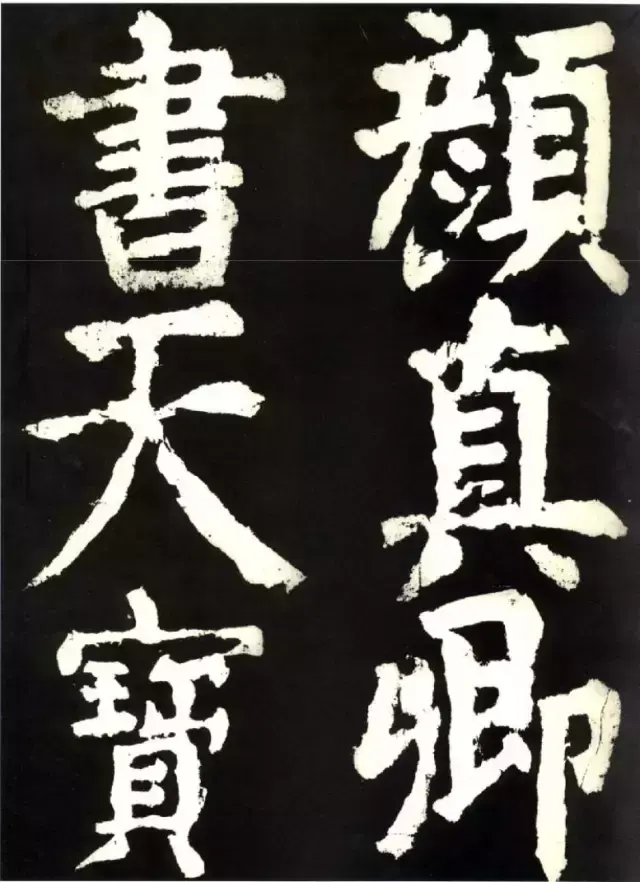 顔真卿
書天寶